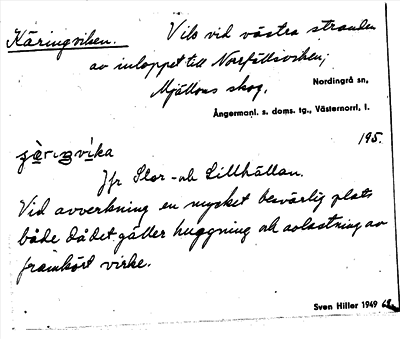 Käringviken. Vik vid västra stranden
av inloppet till Norrfällsviken;
Mjällons skog.
Nordingrå sn,
Ångermanl. s. doms. tg., Västernorrl. l.
195.
Jfr Stor- och Lillhällan.
Vid avverkning en mycket besvärlig plats
både då det gäller huggning och avlastning av
framkört virke.
Sven Hiller 1949